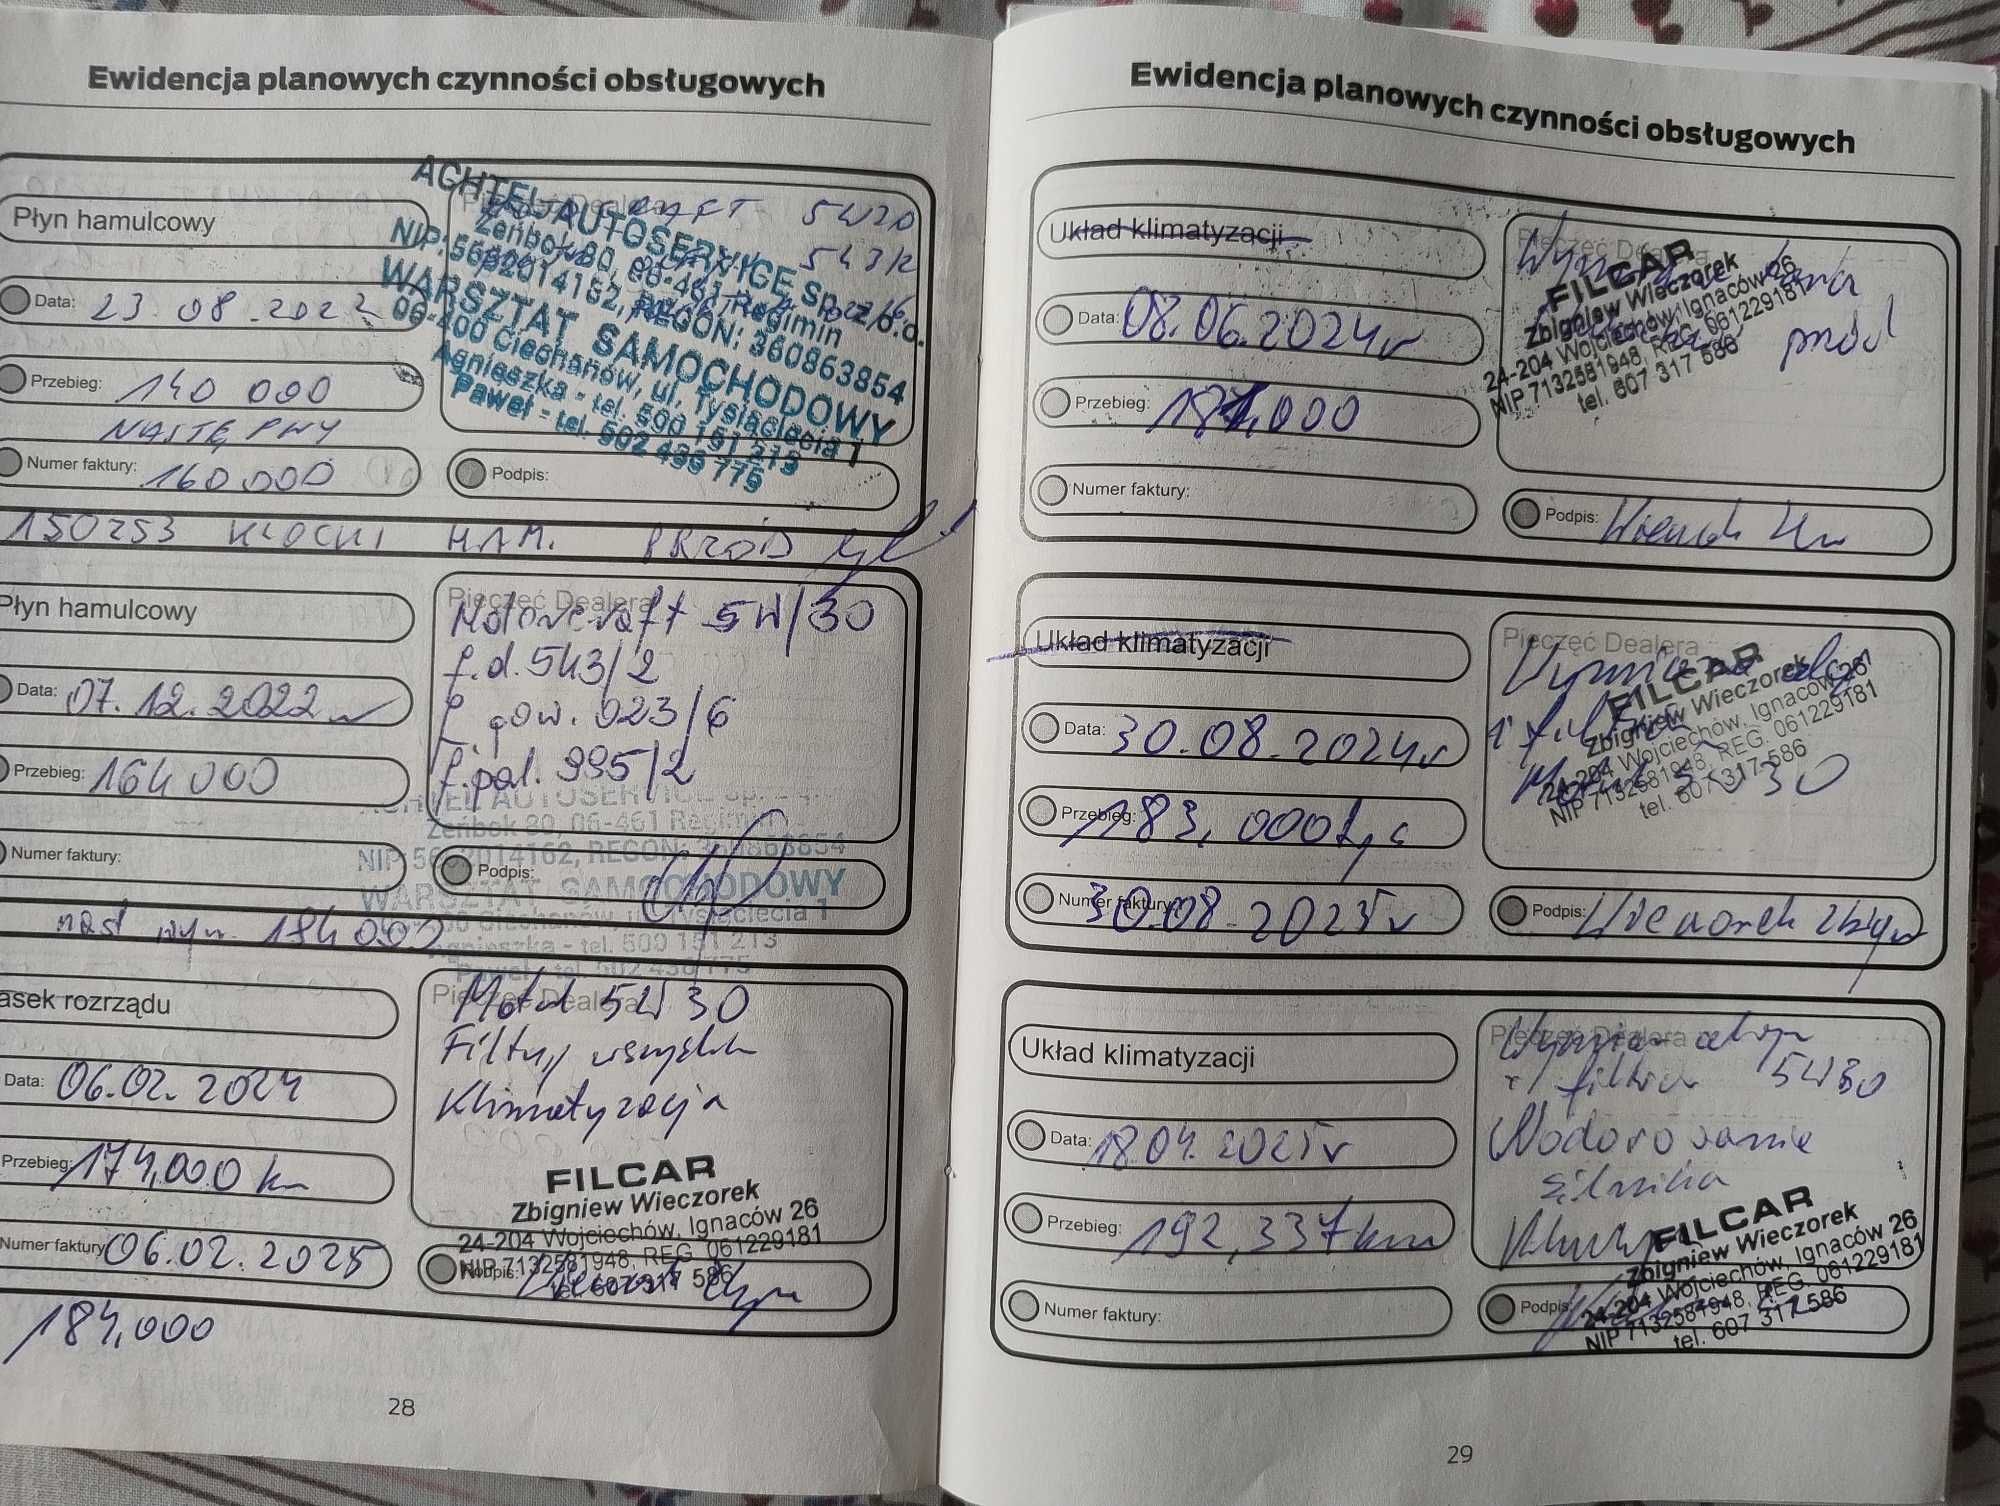 Ewidencja planowych czynności obsługowych
Płyn hamulcowy
Data: 23.08.2022
Przebieg: 140 000
NASTĘPNY
Numer faktury: 160 000
5W20
ACHTEL AUTOSERVICE Sp. z o.o.
Zeńbok 80, 06-461 Regimin
NIP: 5662014162, REGON: 360863854
WARSZTAT SAMOCHODOWY
06-400 Ciechanów, ul. Tysiąclecia 1
Agnieszka - tel. 500 151 213
Paweł - tel. 502 436 775
Podpis:
150253 KLOCKI HAM. PRZÓD
Płyn hamulcowy
Data: 07.12.2022 r
Przebieg: 164 000
Numer faktury:
Pieczęć Dealera
Motorcraft 5W/30
f.d. 543/2
f. pow. 023/6
f. pal. 995/2
ACHTEL AUTOSERVICE Sp.
Zeńbok 80, 06-461 Regimin
NIP 5662014162, REGON: 360863854
WARSZTAT SAMOCHODOWY
Ciechanów, ul. Tysiąclecia 1
Agnieszka - tel. 500 151 213
Paweł - tel. 502 436 775
Podpis:
nast wym. 184 000
asek rozrządu
Data: 06.02.2024
Przebieg: 174,000 km
Numer faktury 06.02.2025
Pieczęć Dealera
Motul 5W30
Filtry
Klimatyzacja
FILCAR
Zbigniew Wieczorek
24-204 Wojciechów, Ignaców 26
NIP 7132581948, REG. 061229181
tel. 607 317 586
Podpis:
184,000
28
Ewidencja planowych czynności obsługowych
Układ klimatyzacji
Data: 08.06.2024r
Przebieg: 181,000
Numer faktury:
Pieczęć Dealera
przód
FILCAR
Zbigniew Wieczorek
24-204 Wojciechów, Ignaców 26
NIP 7132581948, REG. 061229181
tel. 607 317 586
Podpis:
Układ klimatyzacji
Data: 30.08.2024r
Przebieg: 183,000 tys
Numer faktury: 30.08.2025r
Pieczęć Dealera
Wymiana oleju
i filtra
5W30
FILCAR
Zbigniew Wieczorek
24-204 Wojciechów, Ignaców 26
NIP 7132581948, REG. 061229181
tel. 607 317 586
Podpis: Wieczorek Zbigniew
Układ klimatyzacji
Data: 18.04.2025r
Przebieg: 192,337 km
Numer faktury:
Pieczęć Dealera
Wymiana oleju
i filtra 5W30
Wodorowanie
silnika
FILCAR
Zbigniew Wieczorek
24-204 Wojciechów, Ignaców 26
NIP 7132581948, REG. 061229181
tel. 607 317 586
Podpis:
29